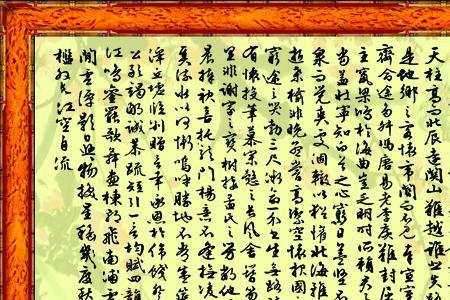 天柱高而北辰遠關山難越誰悲失
是他鄉之客懷帝閽而不見奉宣室
齊命途多舛馮唐易老李廣難封屈
主竄梁鴻於海曲豈乏明時所賴
當益壯寧知白首之心窮且益堅不
泉而覺爽處涸轍以猶懽北海雖
逝桑榆非晚孟嘗高潔空懷報國
窮途之哭勃三尺微命一介書生無路
有懷投筆慕宗愨之長風舍簪笏
里非謝家之寶樹接孟氏之芳鄰他
晨捧袂喜托龍門楊意不逢撫凌
奏流水以何慚嗚呼勝地不常盛筵
澤丘墟臨別贈言幸承恩於偉餞
公敢竭鄙誠恭疏短引一言均賦四韻
江鳴鸞罷歌舞畫棟朝飛南浦雲
閒雲潭影日悠悠物換星移幾度秋
檻外長江空自流